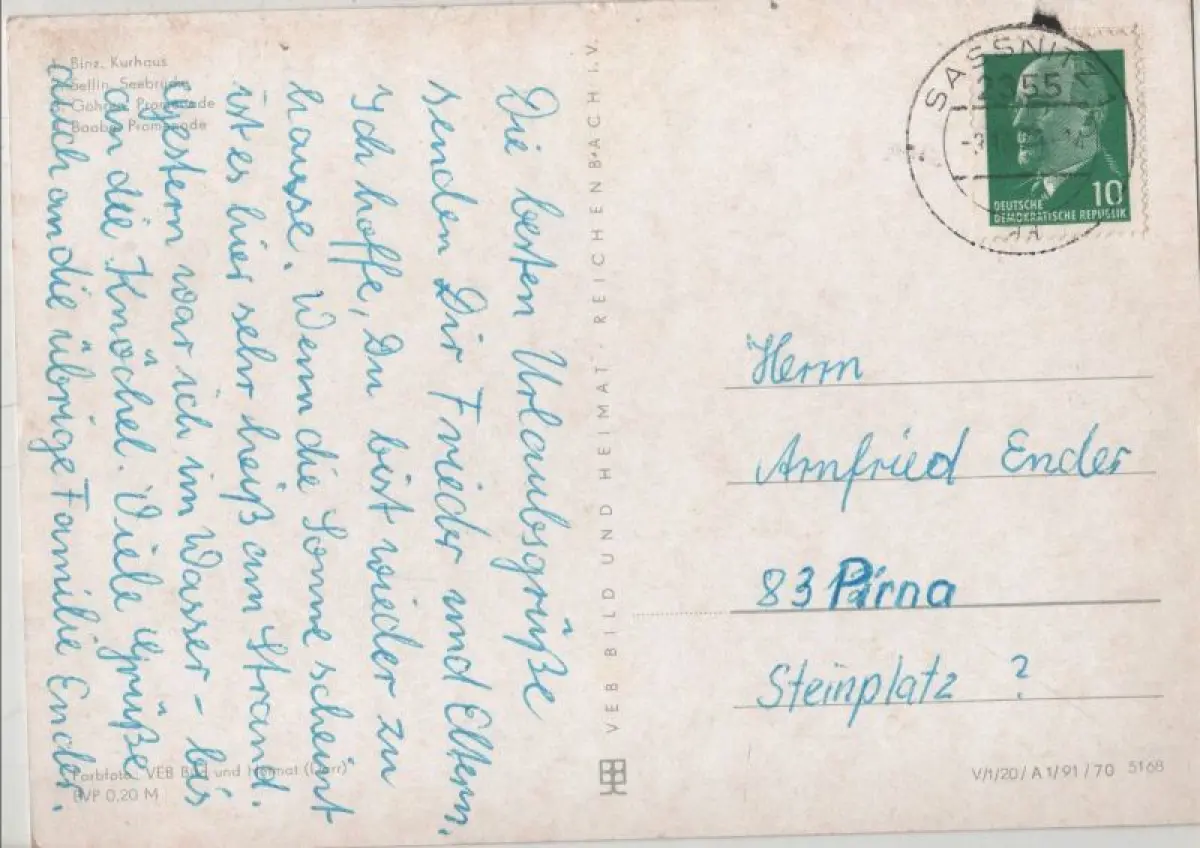 1. Binz, Kurhaus
2. Sellin, Seebrücke
3. Göhren, Promenade
4. Baabe, Promenade
Die besten Urlaubsgrüße
senden Dir Frieder und Eltern.
Ich hoffe, Du bist wieder zu
hause. Wenn die Sonne scheint
ist es hier sehr heiß am Strand.
Gestern war ich im Wasser – bis
an die Knöchel. Viele Grüße
auch an die übrige Familie Ender.
Farbfoto: VEB Bild und Heimat (Darr)
EVP 0,20 M
VEB BILD UND HEIMAT · REICHENBACH I. V.
SASSNITZ
2355
DEUTSCHE
DEMOKRATISCHE REPUBLIK
10
Herrn
Arnfried Ender
83 Pirna
Steinplatz ?
V/1/20/A 1/91/70 5168